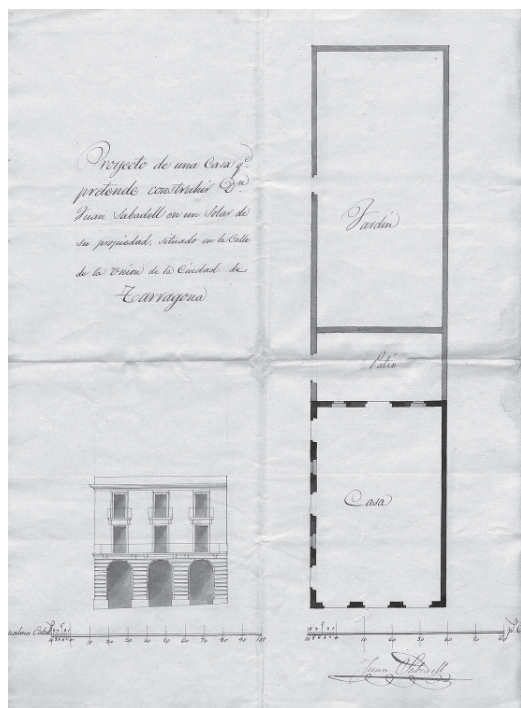 Proyecto de una Casa q.e
pretende construhir D.n
Juan Sabadell en un Solar de
su propiedad, situado en la Calle
de la Union de la Ciudad de
Tarragona
Jardin
Patio
Casa
10 20 30 40 50 60 70 80 90 100
10 20 30 40
Juan Sabadell